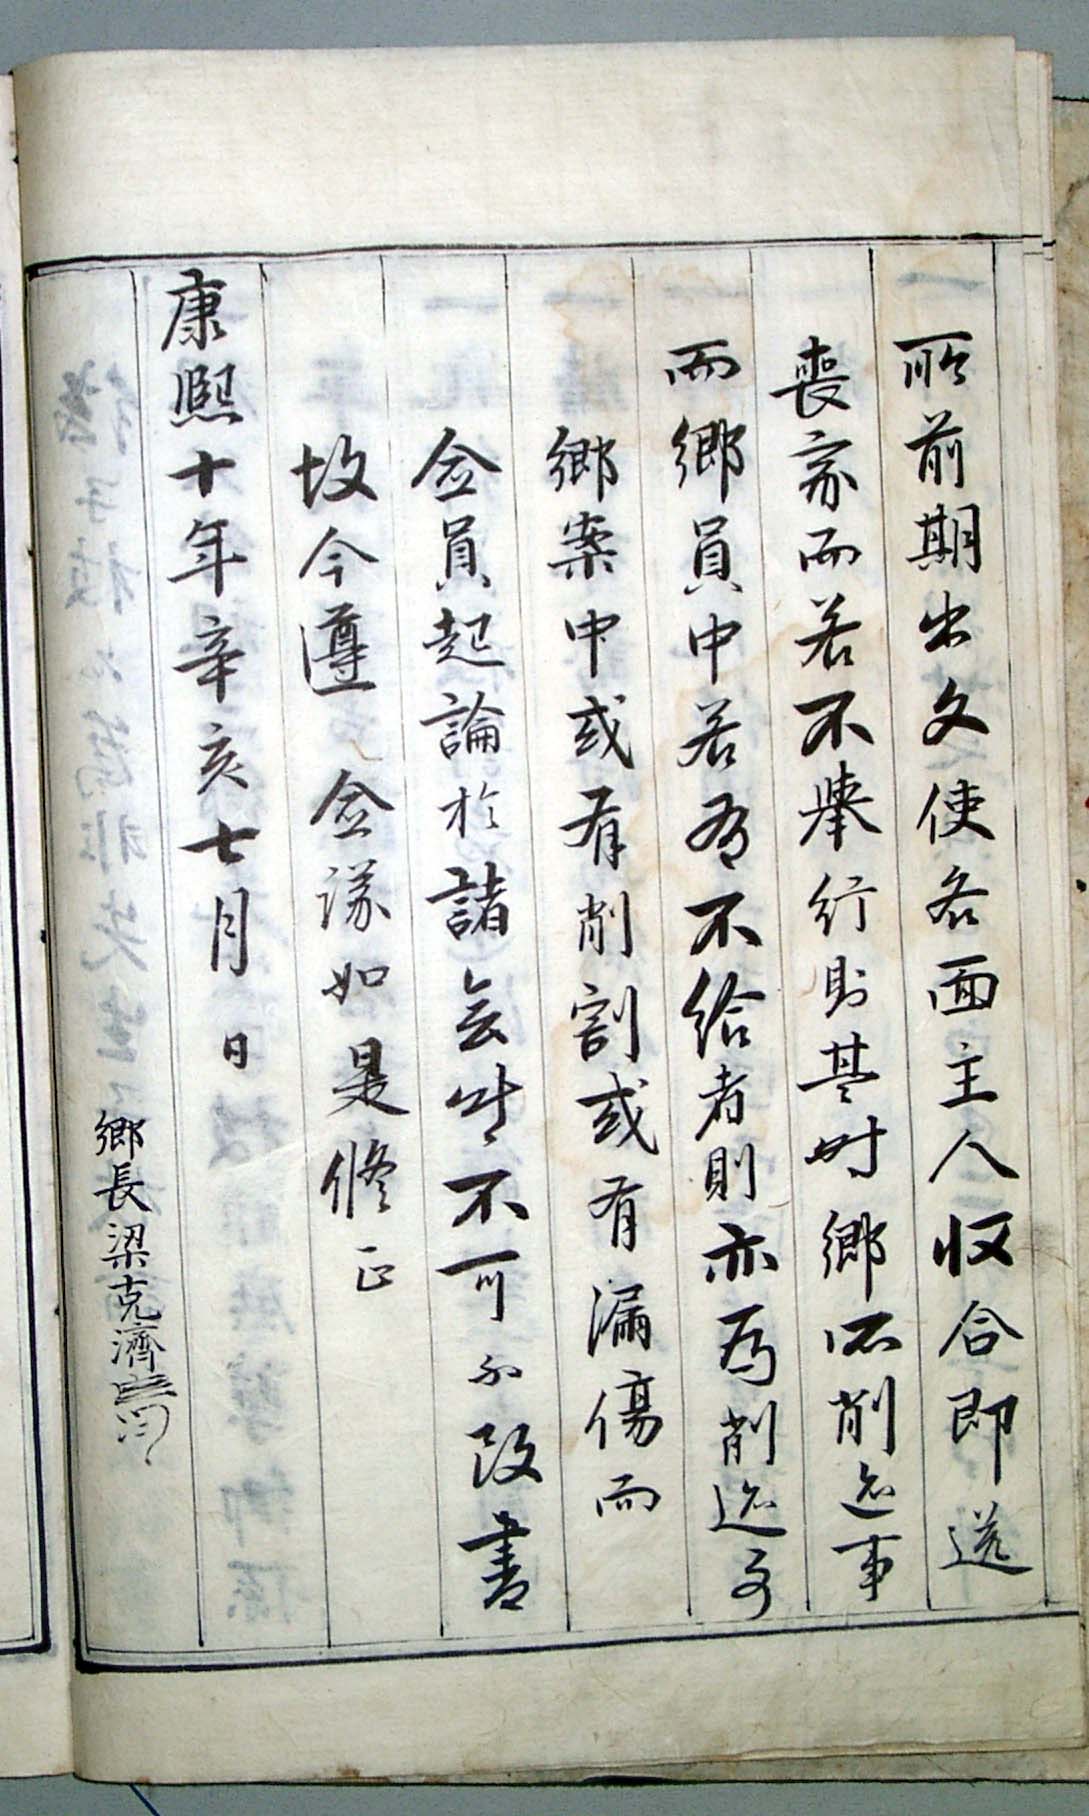 所前期出文使各面主人収合即送
喪家而若不擧行則其時鄕所削迹事
而鄕員中若有不給者則亦爲削迹事
鄕案中或有削割或有漏傷而
僉員起論於諸會中不可不改書
故今遵 僉議如是修正
康熙十年辛亥七月日
鄕長梁克濟